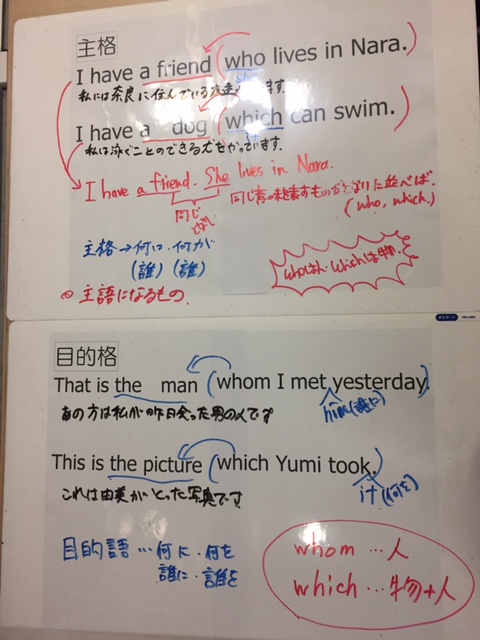 主格
I have a friend (who lives in Nara.)
she
私には奈良に住んでいる友達がいます。
I have a dog (which can swim.)
私は泳ぐことのできる犬をかっています。
I have a friend. She lives in Nara.
同じ
同じ意味を表すものがとなりに並べば。
(who, which.)
主格→何に・何が
(誰) (誰)
主語になるもの
whoは人・whichは物
目的格
That is the man (whom I met yesterday.)
him (誰に)
あの方は私が昨日会った男の人です
This is the picture (which Yumi took.)
it (何を)
これは由美がとった写真です
目的語…何に・何を
誰に・誰を
whom …人
which …物+人